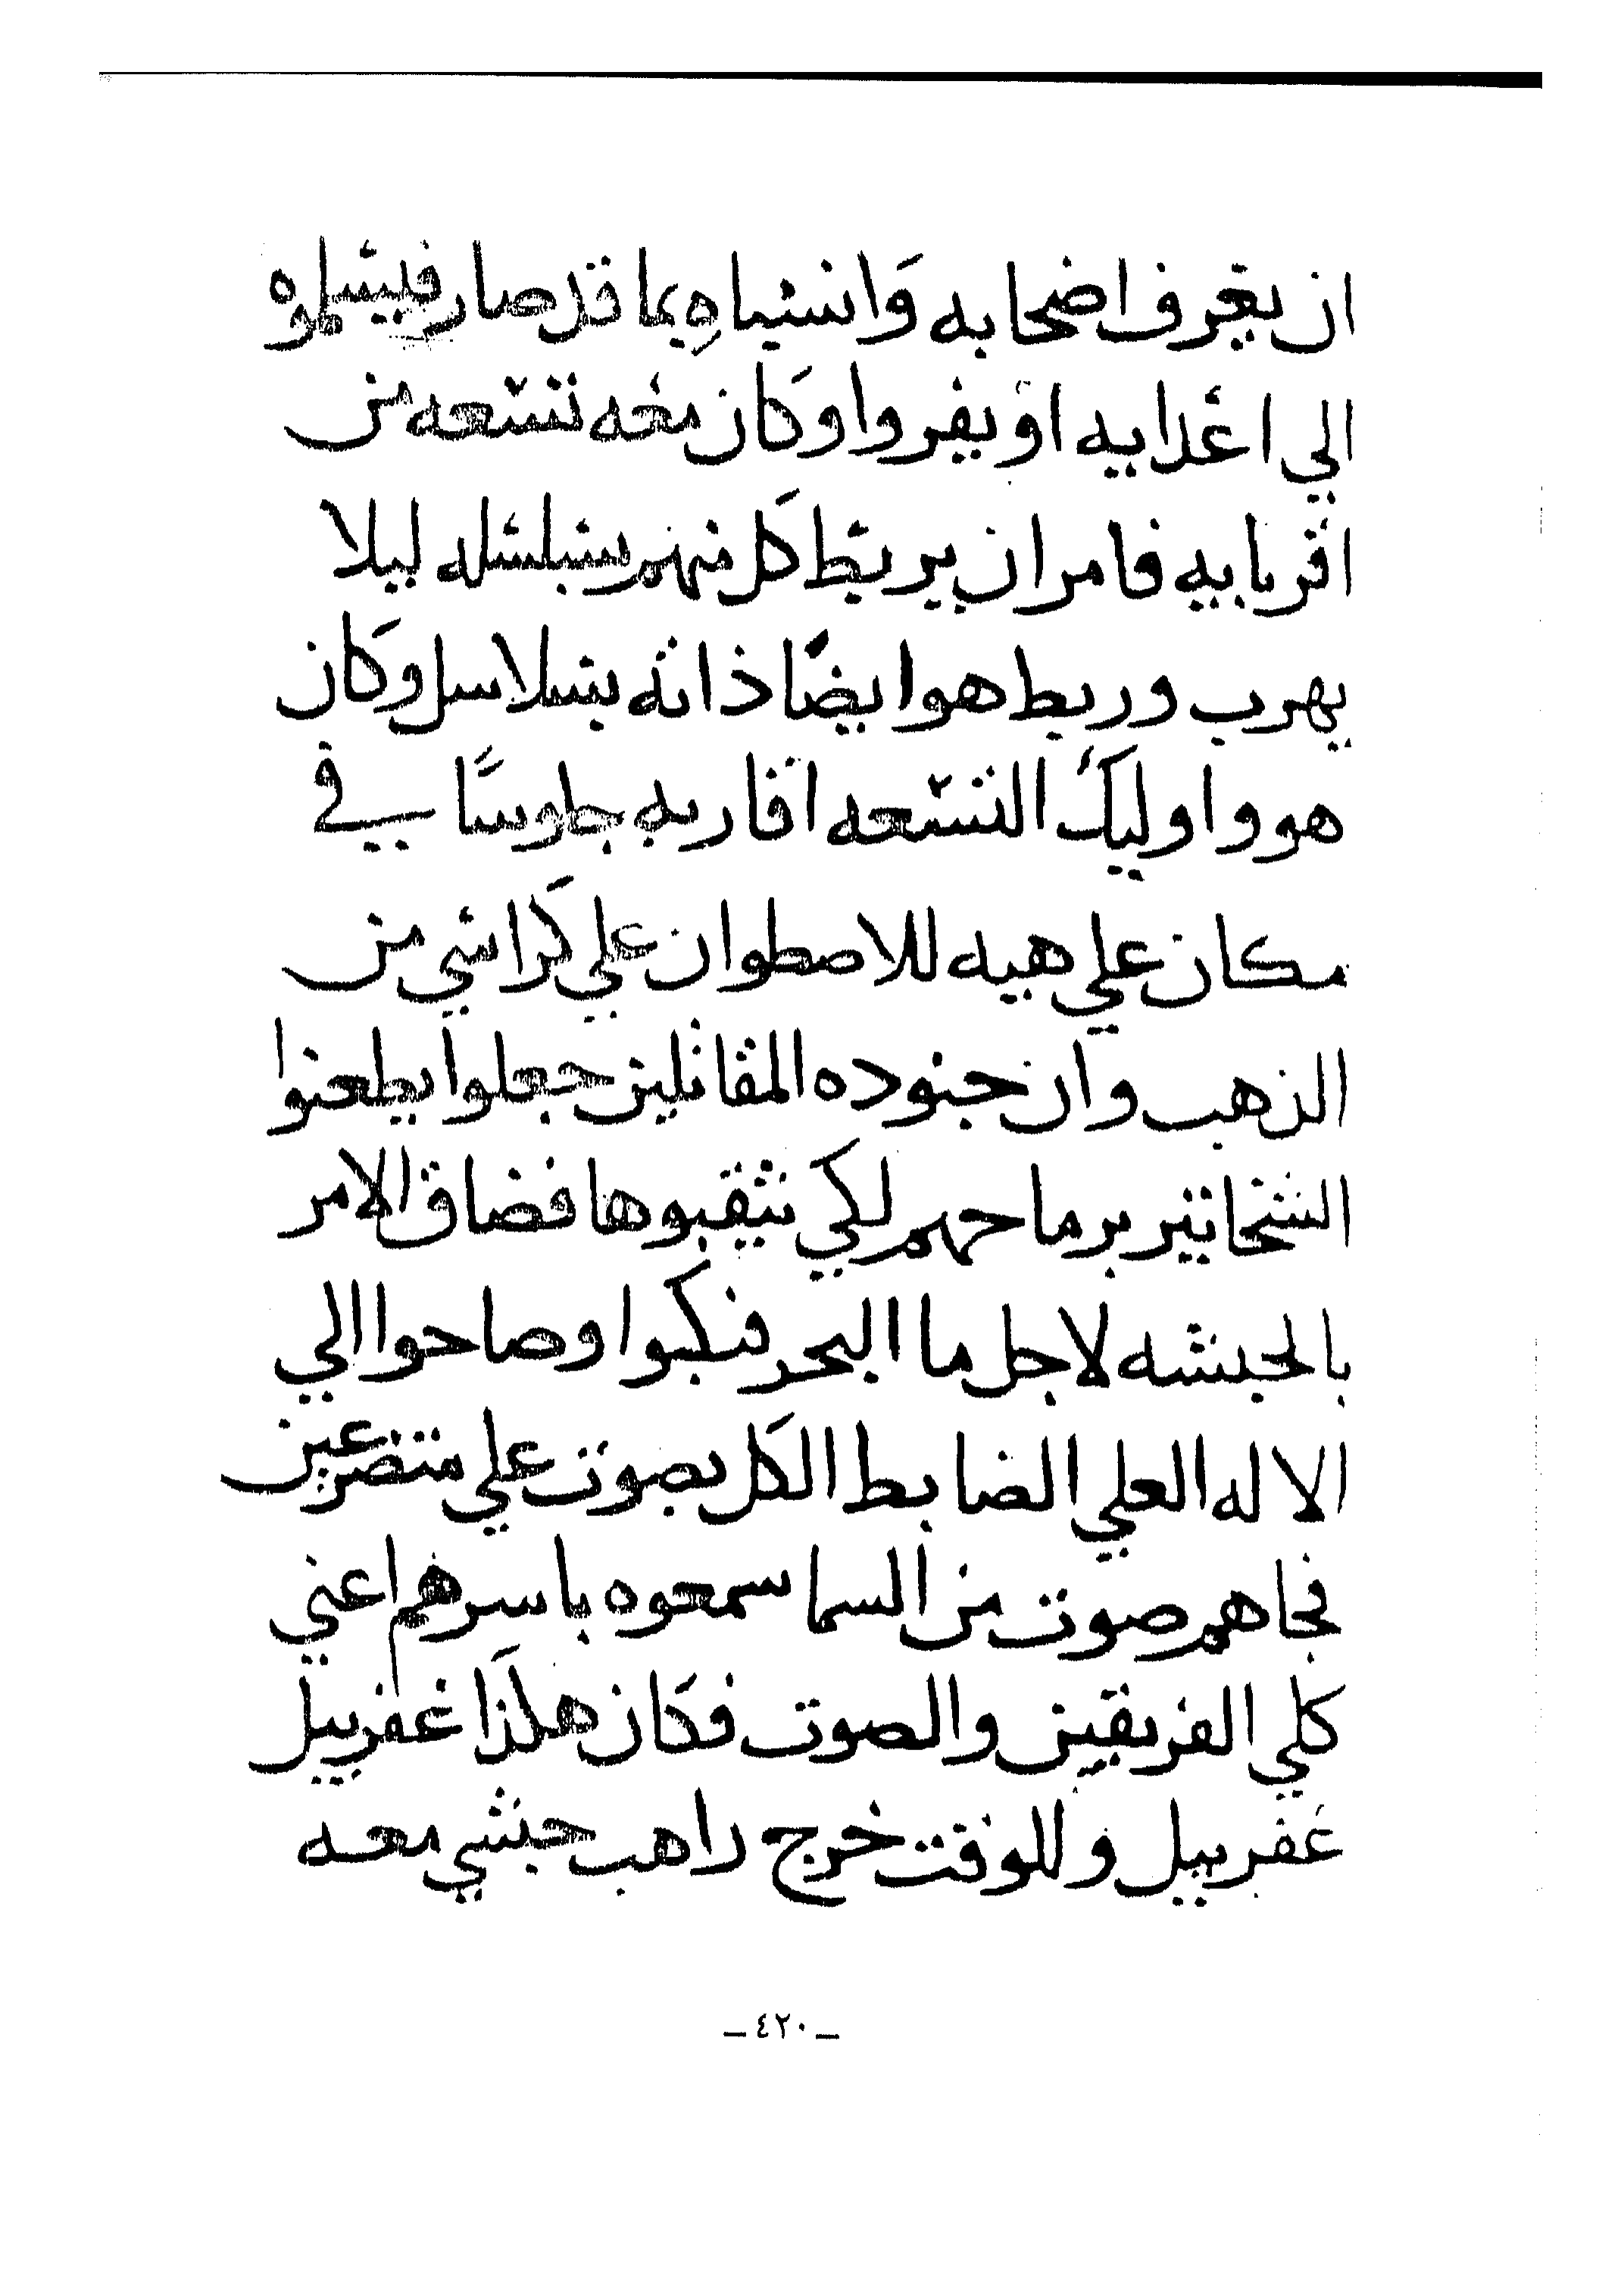 ان يعرف اصحابه وانسباه بما قد صار فيسلموه
الي اعدايه او يفروا وكان معه تسعه من
اقربايه فامر ان يربط كل منهم بسلسله ليلا
يهرب وربط هو ايضًا ذاته بسلاسل وكان
هو واوليك التسعه اقاربه جلوسًا في
مكان علي هيه للاصطوان علي كراسي من
الذهب وان جنوده المقاتلين جعلوا يطعنوا
الشخاتير برماحهم لكي يثقبوها فضاق الامر
بالحبشه لاجل ما البحر فبكوا وصاحوا الي
الاله العلي الضابط الكل بصوت علي متضرعين
فجاهم صوت من السما سمعوه باسرهم اعني
كلي الفريقين والصوت فكان هكذا غفربيل
غفربيل وللوقت خرج راهب حبشي معه
_ ٤٢٠ _